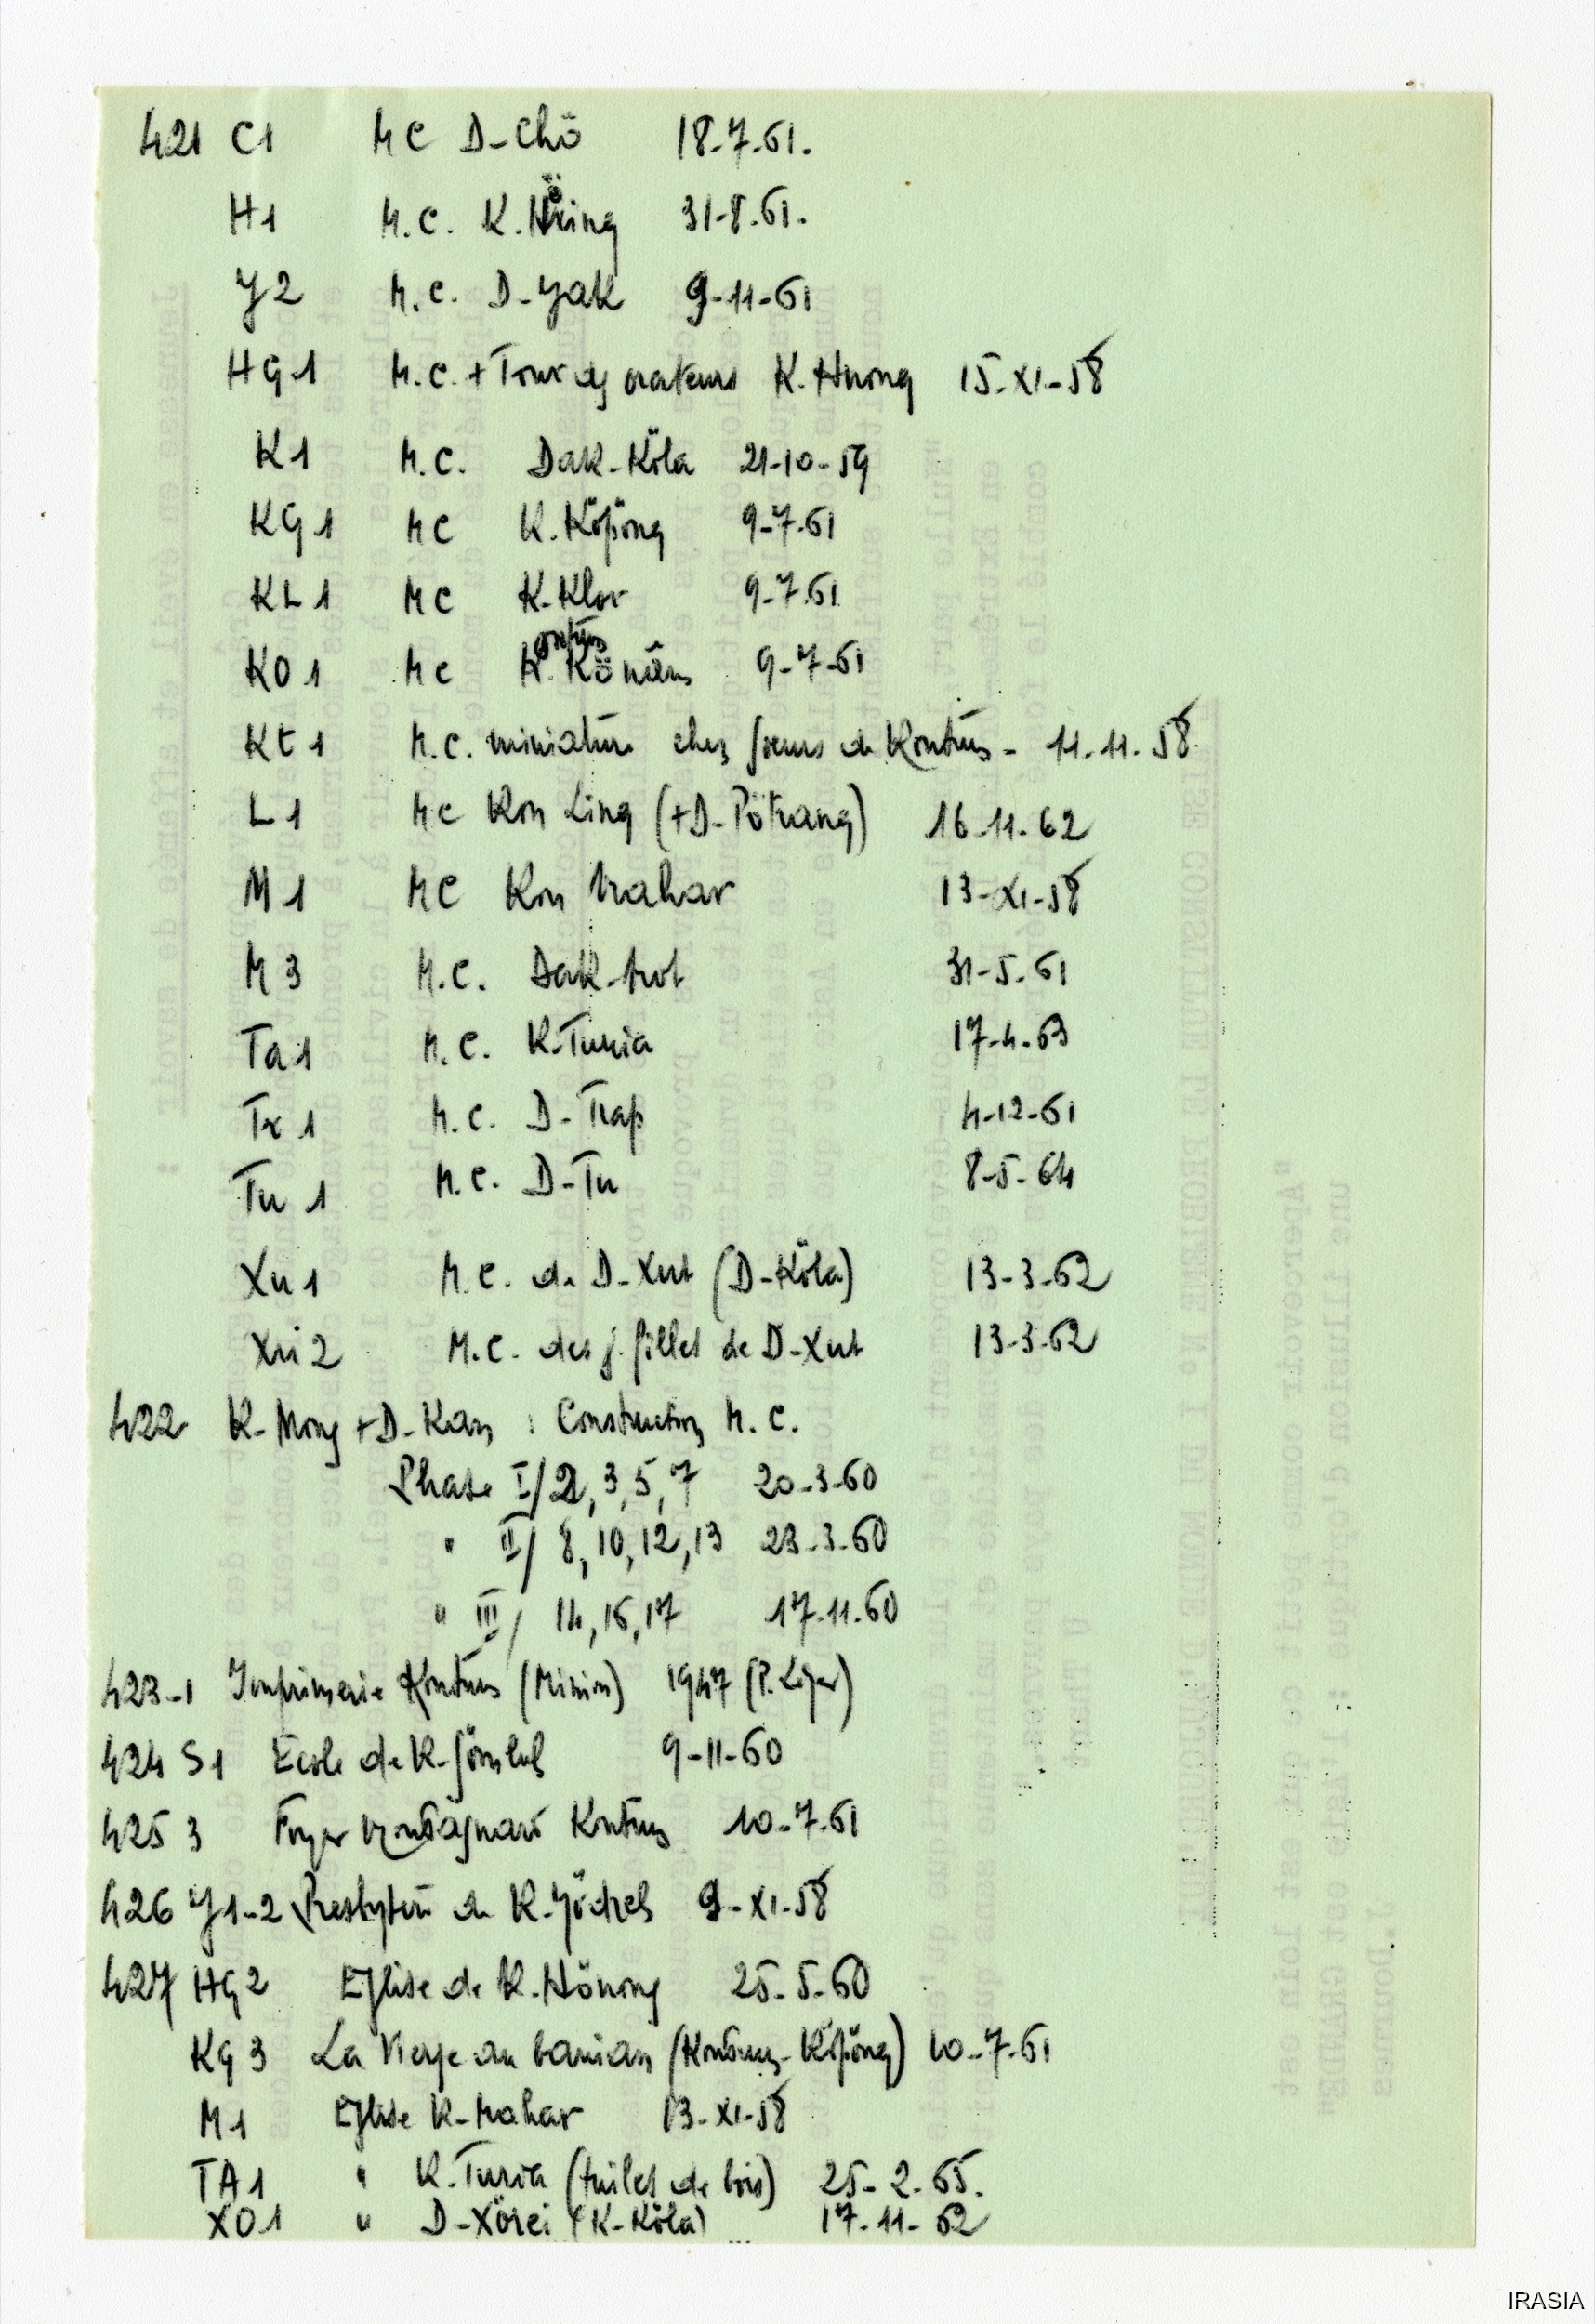 421 C1 MC D-Chö 18-7-61.
H1 M.C. K. Hring 31-8-61.
Y2 M.C. D-Yak 9-11-61
HG1 M.C. + Tour K. Hnong 15-XI-58
K1 M.C. Dak-Köla 21-10-59
KG1 MC K. Köpöng 9-7-61
KL1 MC K-Klor 9-7-61
KO1 MC K. Könâm 9-7-61
Kt1 M.C. miniature chez soeurs de Kontum - 11-11-58
L1 MC Kon Ling (+D-Pötrang) 16-11-62
M1 MC Kon Mahar 13-XI-58
M3 M.C. Dak-Mot 31-5-61
Ta1 M.C. K-Turia 17-4-63
Tr1 M.C. D-Trap 4-12-61
Tu1 M.C. D-Tu 8-5-64
Xu1 M.C. de D-Xut (D-Köla) 13-3-62
Xu2 M.C. des j. filles de D-Xut 13-3-62
422 K-Mong + D-Kam : Construction M.C.
Phase I/2, 3, 5, 7 20-3-60
" II/ 8, 10, 12, 13 23-3-60
" III/ 14, 16, 17 17-11-60
423-1 Imprimerie Kontum (Mission) 1947 (P. Léger)
424 S1 Ecole de K- 9-11-60
425 3 Foyer montagnard Kontum 10-7-61
426 Y1-2 Presbytère de K. Jödreh 9-XI-58
427 HG2 Eglise de K. Hönong 25-5-60
KG3 La Vierge au banian (Kontum-Köpöng) 10-7-61
M1 Eglise K-Mahar 13-XI-58
TA1 " K. Turia (tuiles de bois) 25-2-65.
XO1 " D-Xörei (K-Köla) 17-11-62
IRASIA